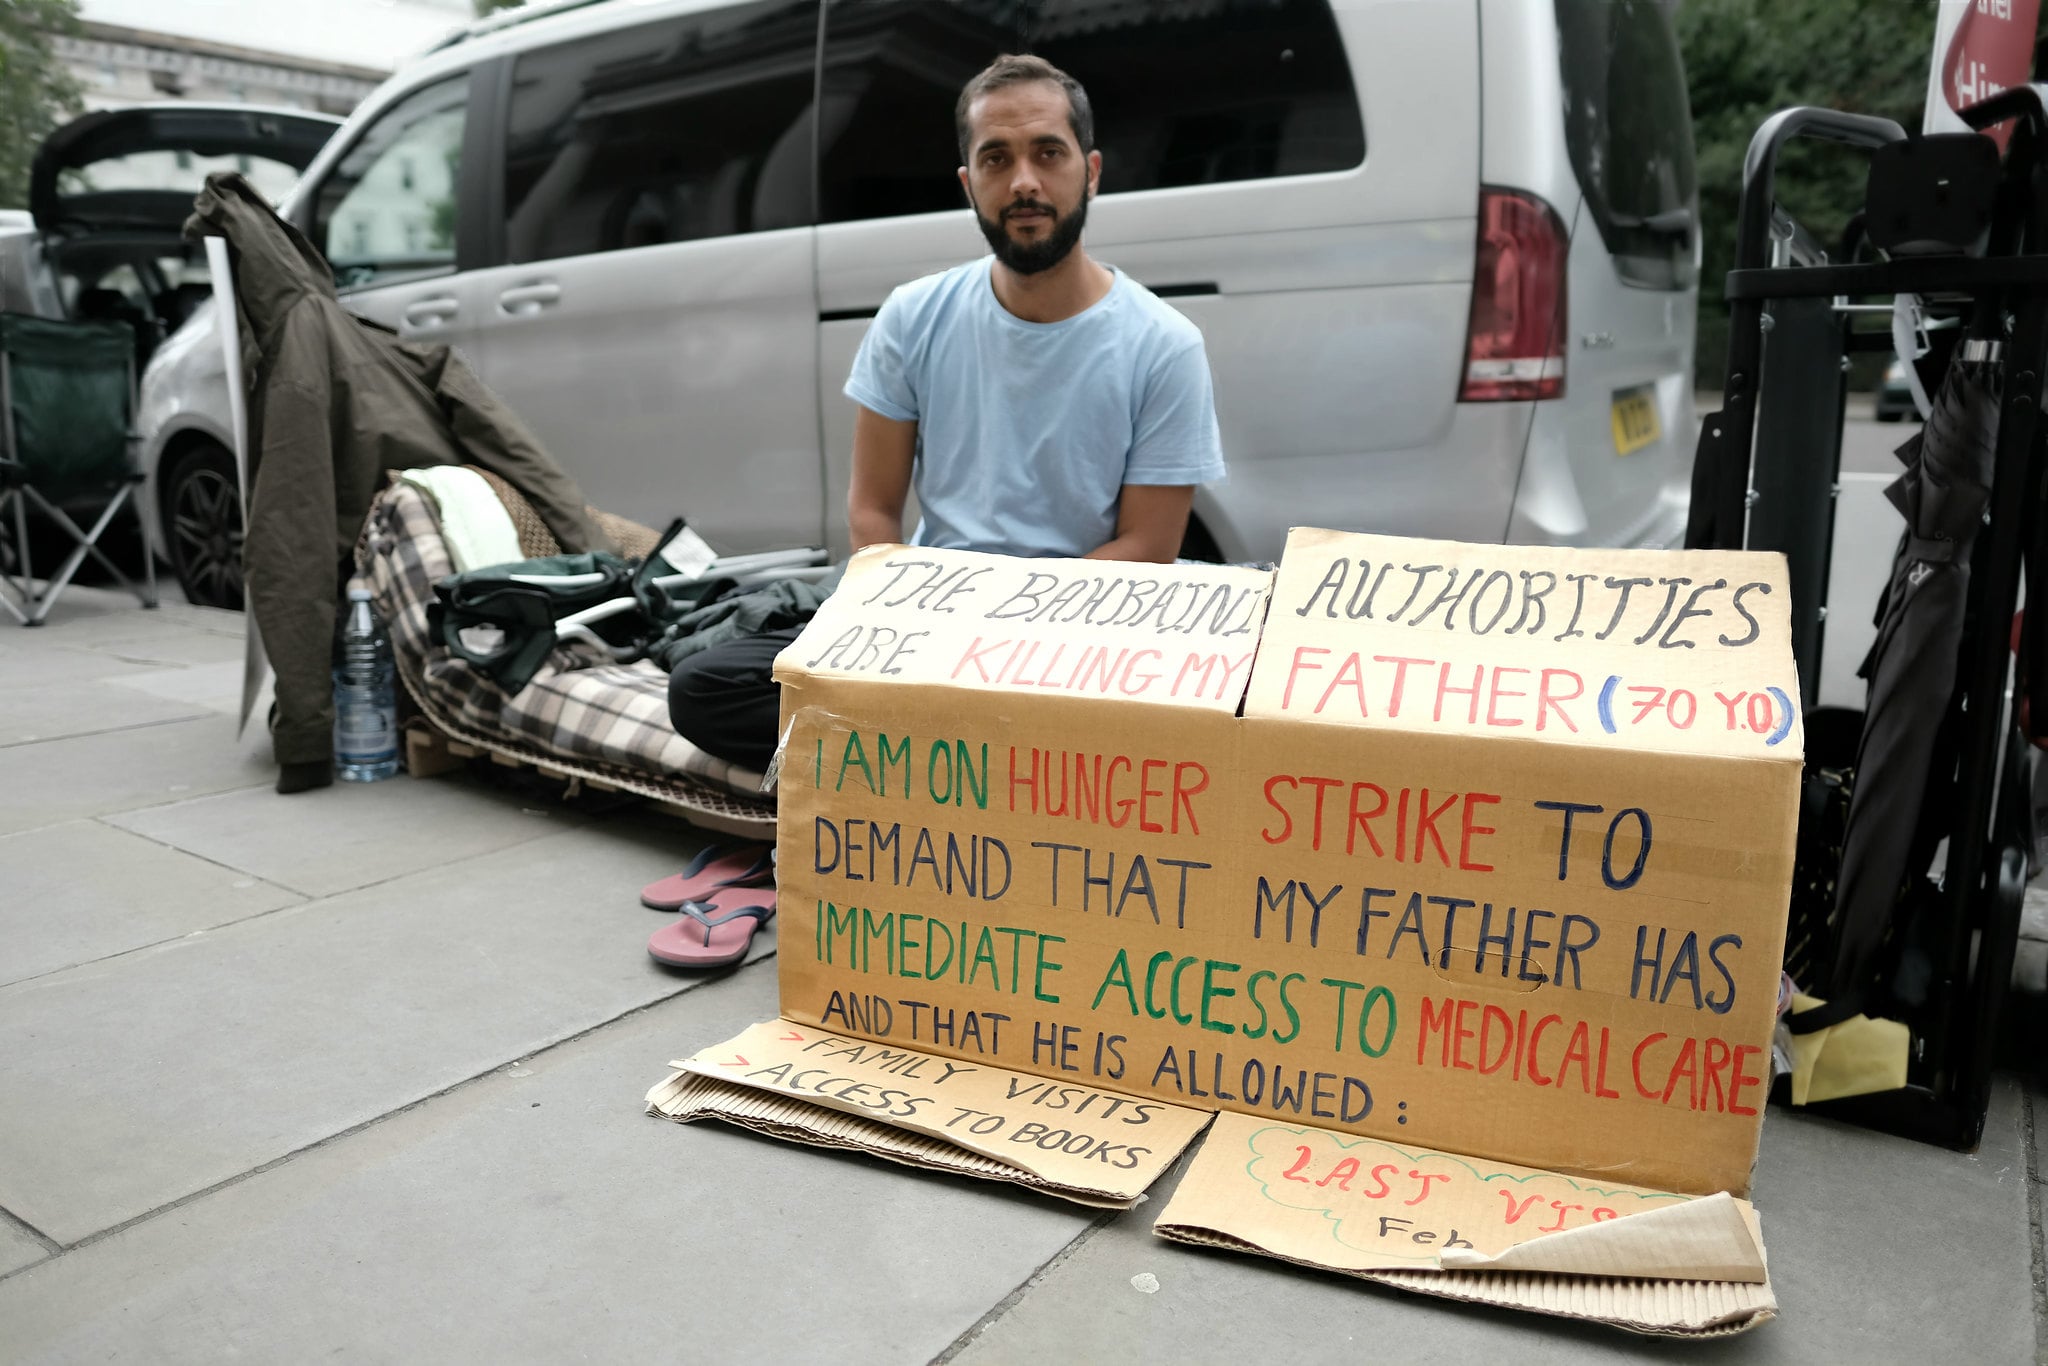 THE BAHRAINI AUTHORITIES
ARE KILLING MY FATHER (70 Y.O)
I AM ON HUNGER STRIKE TO
DEMAND THAT MY FATHER HAS
IMMEDIATE ACCESS TO MEDICAL CARE
AND THAT HE IS ALLOWED:
> FAMILY VISITS
> ACCESS TO BOOKS
LAST
Feb